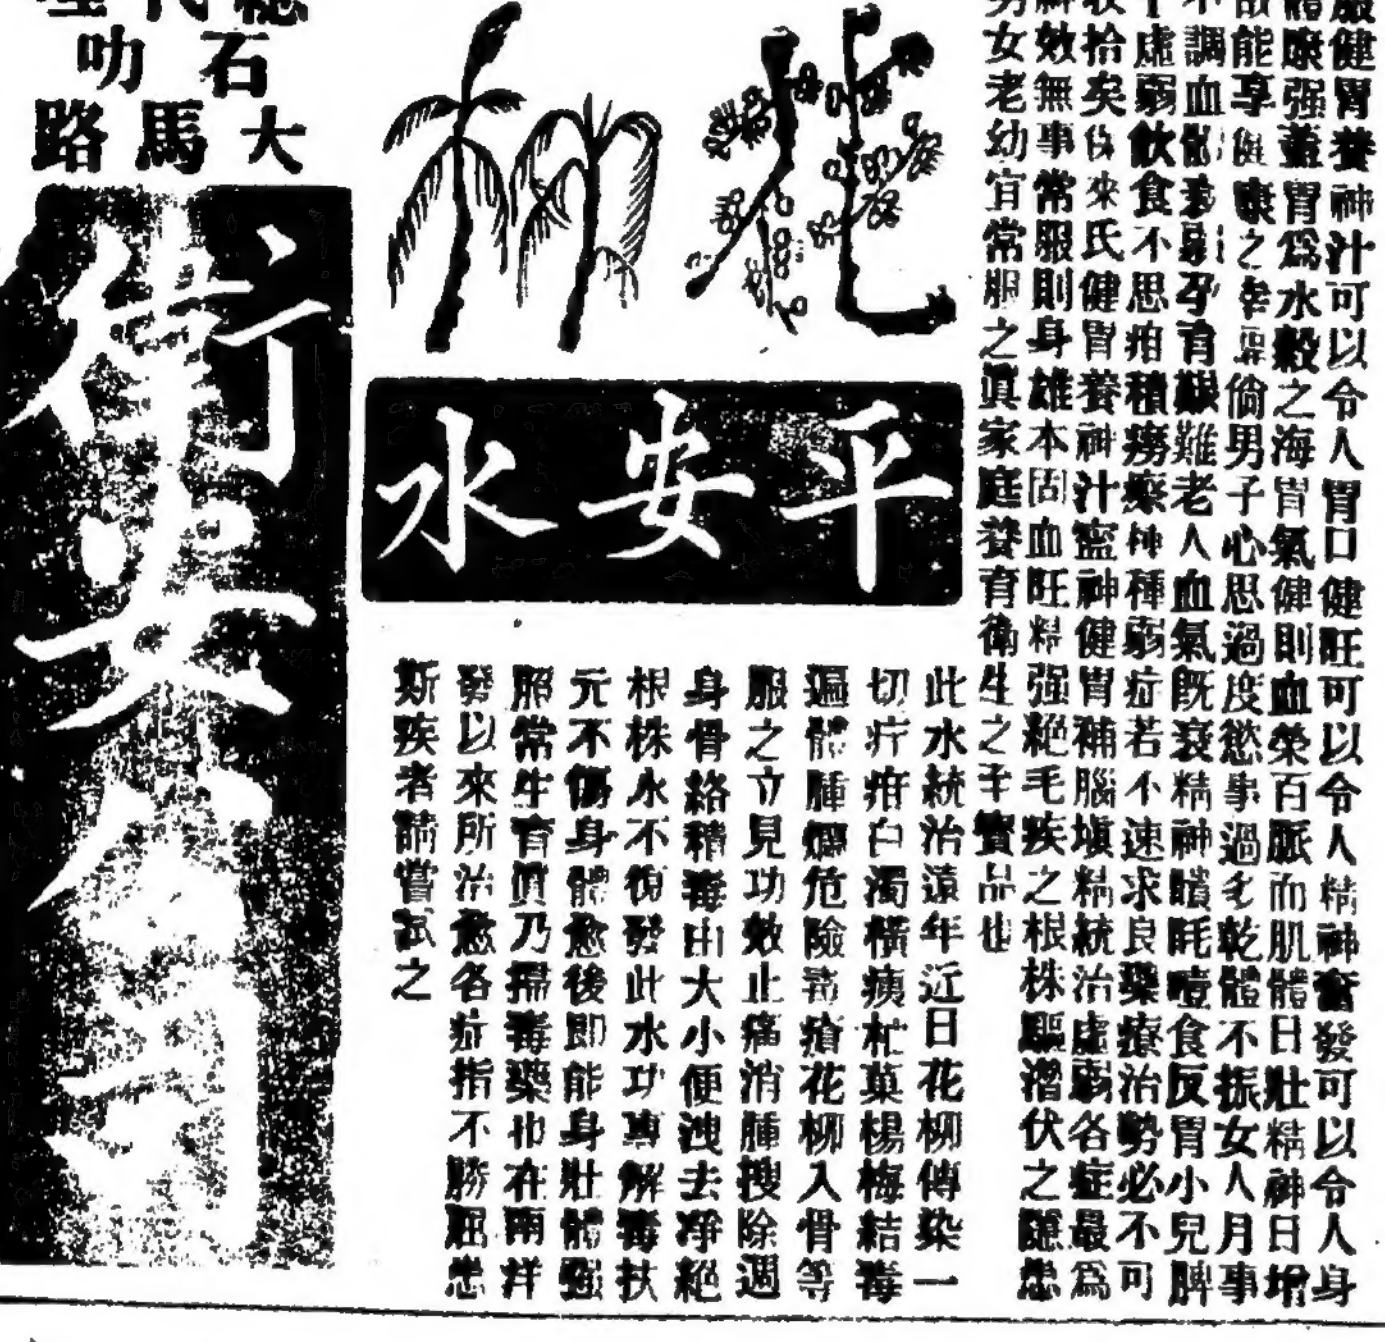 服健胃養神汁可以令人胃口健旺可以令人精神奮發可以令人身
體康强蓋胃為水穀之海胃氣健則血榮百脈而肌體日壯精神日增
故能享健康之幸福倘男子心思過度慾事過多乾體不振女人月事
不調血孕育艱難老人血氣既衰精神瞶眊噎食反胃小兒脾
虛弱飲食不思疳積癆瘵種種弱症若不速求良藥療治勢必不可
收拾矣氏健胃養神汁蜜神健胃補腦塡精統治虛弱各症最爲
神效無事常服則身雄本固血旺精强絕毛疾之根株驅潛伏之隱患
男女老幼宜常服之眞家庭養育衛生之寶品也
花柳
平安水
此水統治遠年近日花柳傳染一
切疔疳白濁橫痰杧菓楊梅結毒
遍體腫爛危險毒瘡花柳入骨等
服之立見功效止痛消腫搜除週
身骨絡積毒由大小便洩去净絕
根株永不復發此水功專解毒扶
元不傷身體愈後即能身壯體强
照常生育眞乃掃毒藥也在兩洋
發以來所治愈各症指不勝屈患
斯疾者請嘗試之
總代理
石叻
大馬路
衛安公司